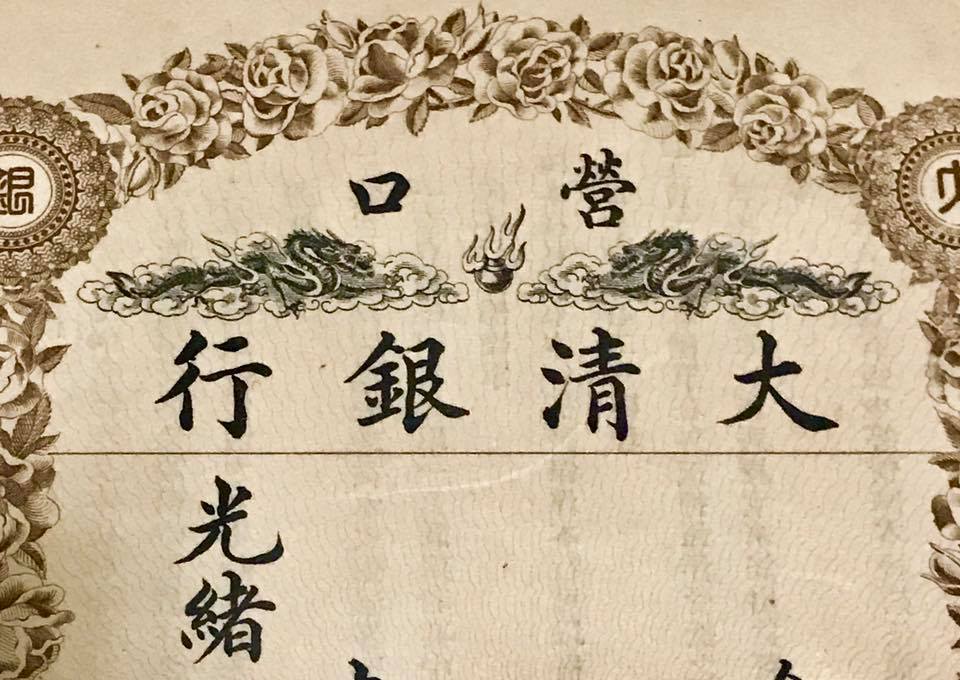 營口
大清銀行
光緒
銀